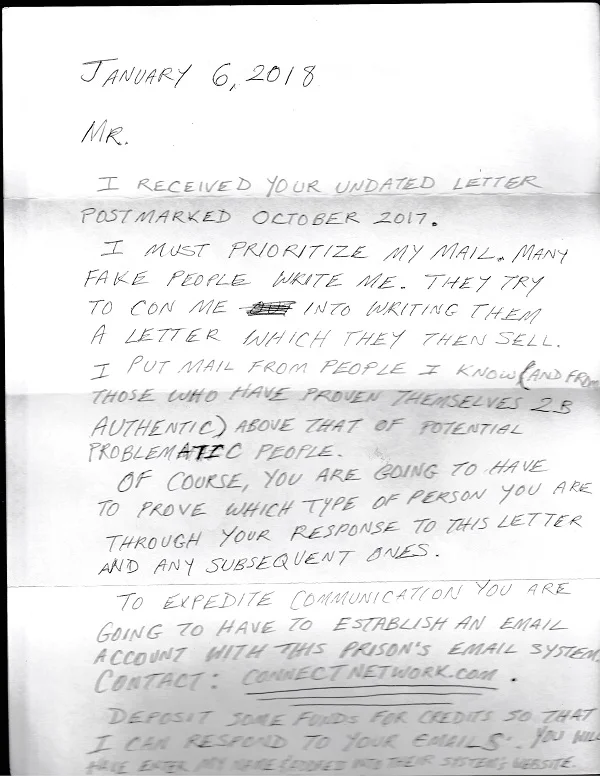 JANUARY 6, 2018
MR.
I RECEIVED YOUR UNDATED LETTER
POSTMARKED OCTOBER 2017.
I MUST PRIORITIZE MY MAIL. MANY
FAKE PEOPLE WRITE ME. THEY TRY
TO CON ME INTO WRITING THEM
A LETTER WHICH THEY THEN SELL.
I PUT MAIL FROM PEOPLE I KNOW (AND FROM
THOSE WHO HAVE PROVEN THEMSELVES 2B
AUTHENTIC) ABOVE THAT OF POTENTIAL
PROBLEMATIC PEOPLE.
OF COURSE, YOU ARE GOING TO HAVE
TO PROVE WHICH TYPE OF PERSON YOU ARE
THROUGH YOUR RESPONSE TO THIS LETTER
AND ANY SUBSEQUENT ONES.
TO EXPEDITE COMMUNICATION YOU ARE
GOING TO HAVE TO ESTABLISH AN EMAIL
ACCOUNT WITH THIS PRISON'S EMAIL SYSTEM.
CONTACT: CONNECTNETWORK.COM.
DEPOSIT SOME FUNDS FOR CREDITS SO THAT
I CAN RESPOND TO YOUR EMAILS. YOU WILL
HAVE ENTER MY NAME INTO THEIR SYSTEM'S WEBSITE.